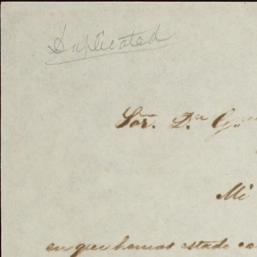 Duplicated
Sor. Dn
Mi
en que hemos estado